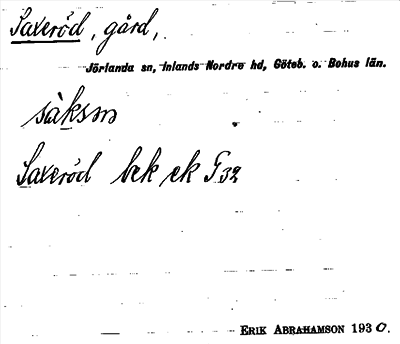 Saxeröd, gård,
Jörlanda sn, Inlands Nordre hd, Göteb. o. Bohus län.
sàksnn
Saxeröd bek ek G 32
ERIK ABRAHAMSON 1930.